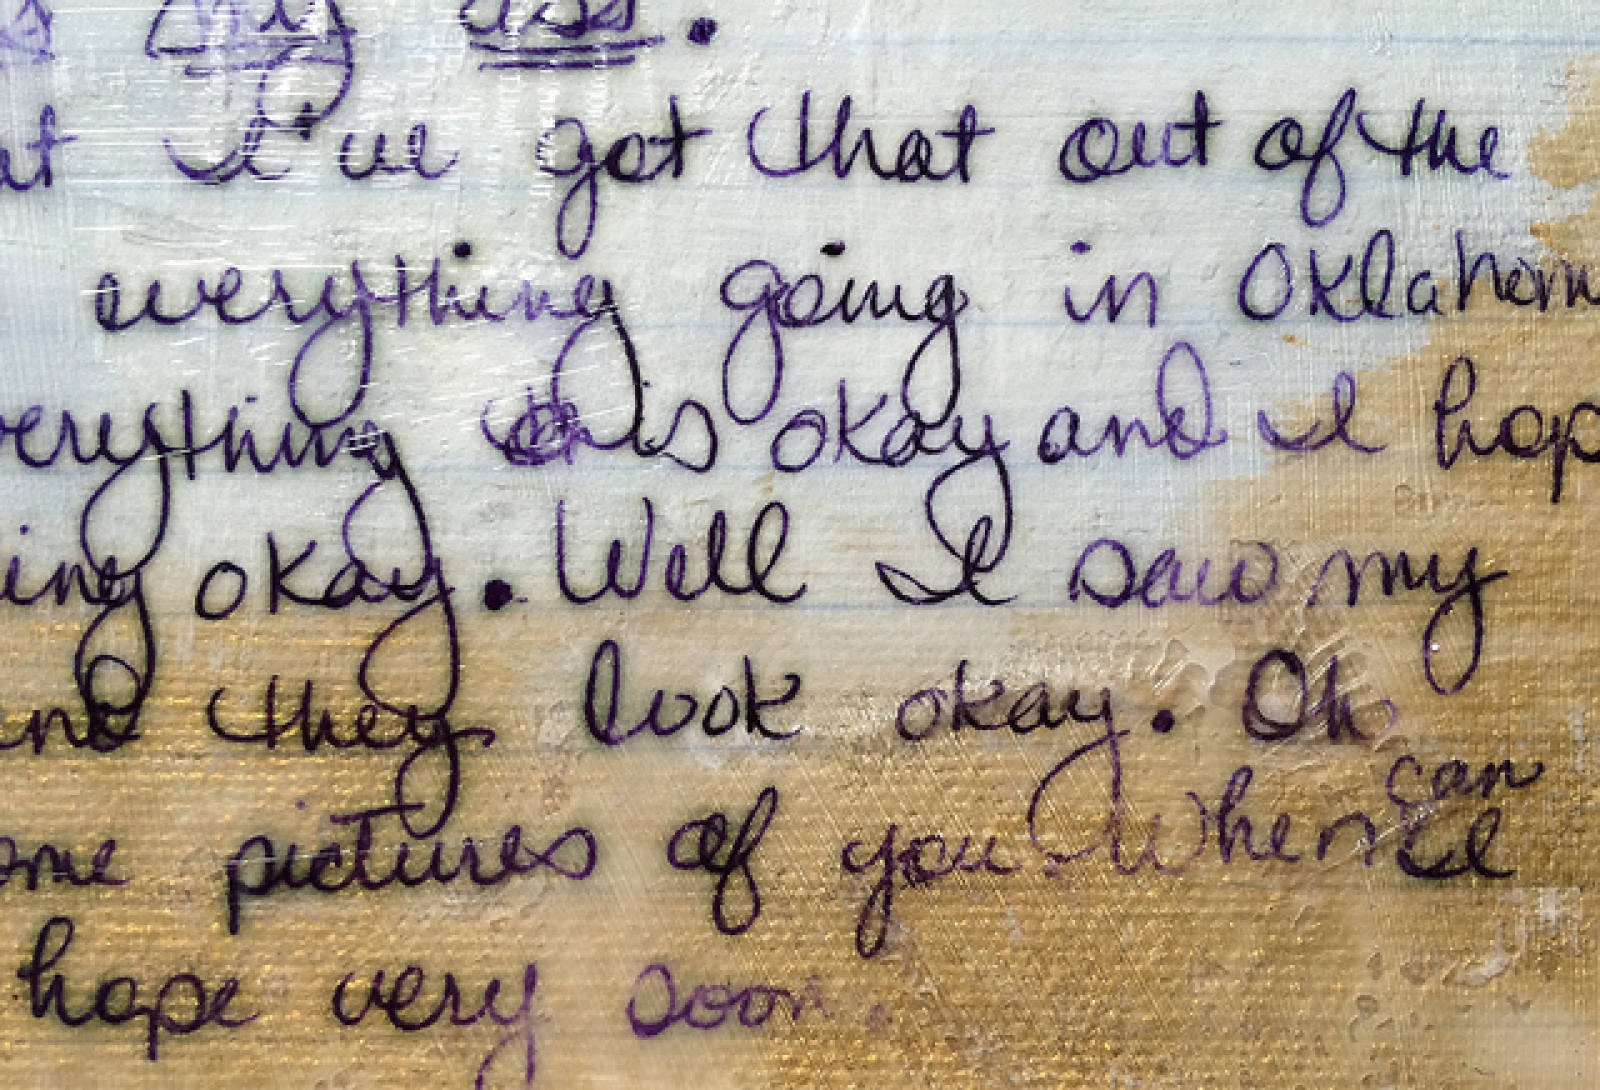 s my ass.
at I've got that out of the
everything going in Oklahom
verything is okay and I hop
ing okay. Well I saw my
and they look okay. Oh
ome pictures of you. When can I
hope very soon.